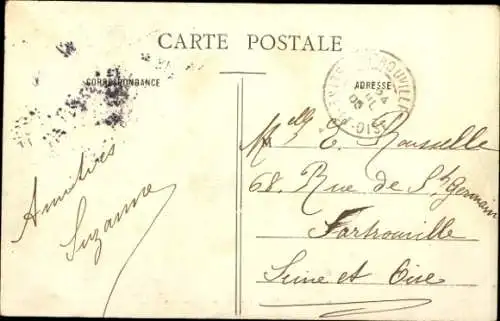 CARTE POSTALE
CORRESPONDANCE
ADRESSE
Amitiés
Suzanne
Melle E. Rousselle
68, Rue de St Germain
Sartrouville
Seine et Oise